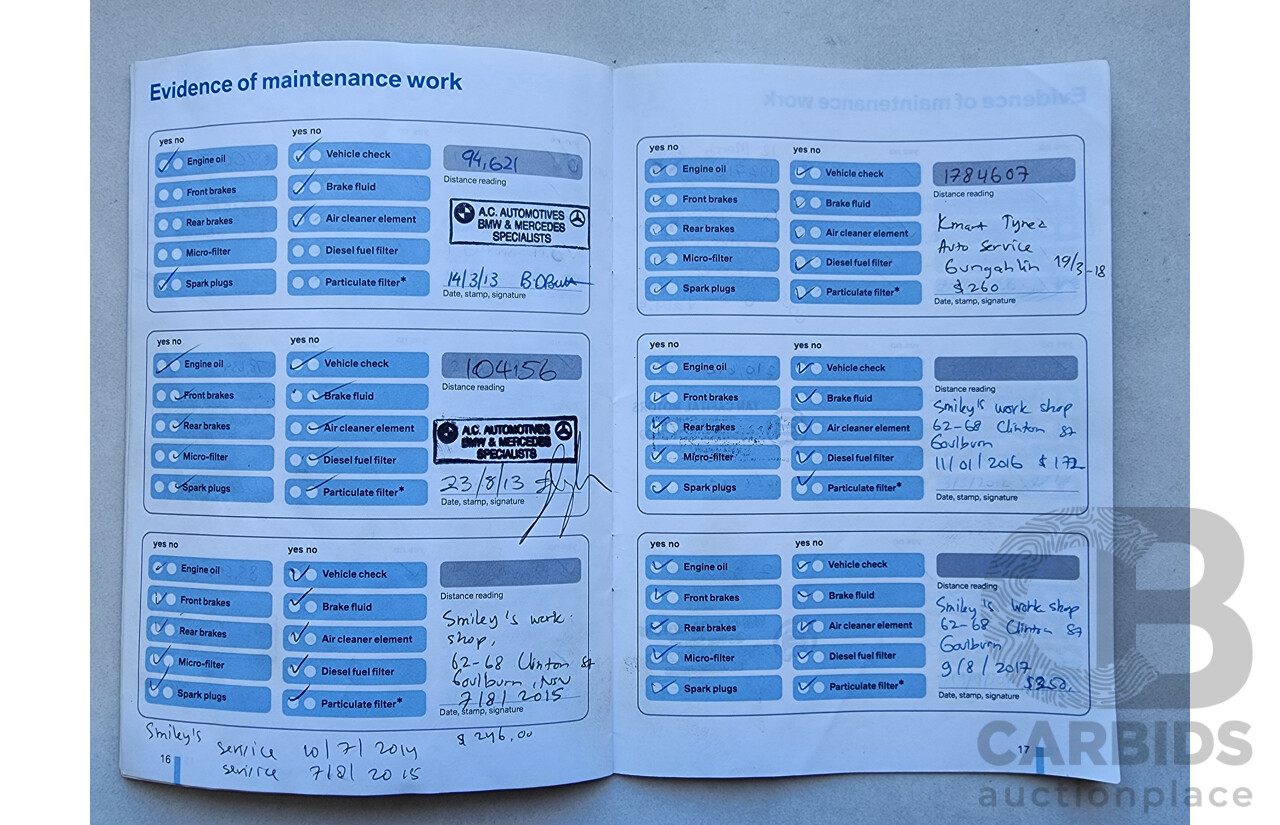 Evidence of maintenance work
yes no
yes no
Engine oil
Front brakes
Rear brakes
Micro-filter
Spark plugs
Vehicle check
Brake fluid
Air cleaner element
Diesel fuel filter
Particulate filter*
94,621
Distance reading
A.C. AUTOMOTIVES
BMW & MERCEDES
SPECIALISTS
14/3/13
Date, stamp, signature
yes no
yes no
Engine oil
Front brakes
Rear brakes
Micro-filter
Spark plugs
Vehicle check
Brake fluid
Air cleaner element
Diesel fuel filter
Particulate filter*
104156
Distance reading
A.C. AUTOMOTIVES
BMW & MERCEDES
SPECIALISTS
23/8/13
Date, stamp, signature
yes no
yes no
Engine oil
Front brakes
Rear brakes
Micro-filter
Spark plugs
Vehicle check
Brake fluid
Air cleaner element
Diesel fuel filter
Particulate filter*
Distance reading
Smiley's work
shop,
62-68 Clinton St
Goulburn, NSW
7/8/2015
Date, stamp, signature
$246.00
Smiley's service 10/7/2014
service 7/8/2015
16
yes no
yes no
Engine oil
Front brakes
Rear brakes
Micro-filter
Spark plugs
Vehicle check
Brake fluid
Air cleaner element
Diesel fuel filter
Particulate filter*
1784607
Distance reading
Kmart Tyres
Auto Service
Gungahlin 19/3-18
$260
Date, stamp, signature
yes no
yes no
Engine oil
Front brakes
Rear brakes
Micro-filter
Spark plugs
Vehicle check
Brake fluid
Air cleaner element
Diesel fuel filter
Particulate filter*
Distance reading
Smiley's work shop
62-68 Clinton St
Goulburn
11/01/2016 $172
Date, stamp, signature
yes no
yes no
Engine oil
Front brakes
Rear brakes
Micro-filter
Spark plugs
Vehicle check
Brake fluid
Air cleaner element
Diesel fuel filter
Particulate filter*
Distance reading
Smiley's work shop
62-68 Clinton St
Goulburn
9/8/2017
$350,
Date, stamp, signature
17
CARBIDS
auctionplace